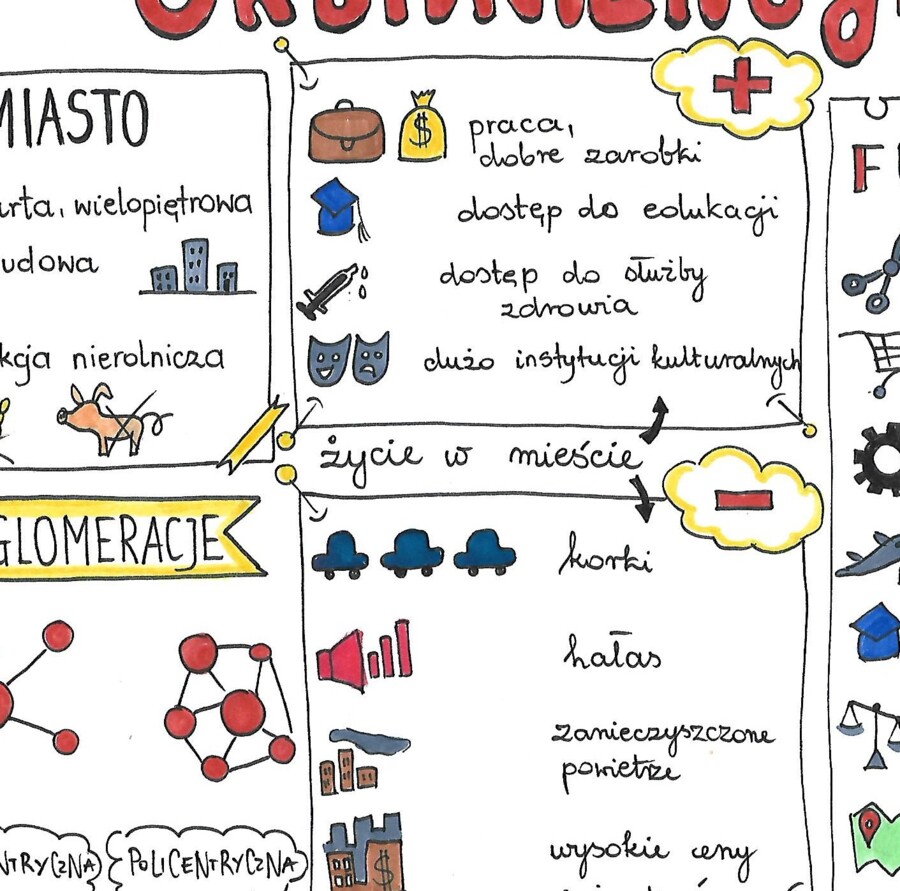 MIASTO
wielopiętrowa
nierolnicza
GLOMERACJE
NTRYCZNA
POLICENTRYCZNA
praca,
dobre zarobki
dostęp do edukacji
dostęp do służby
zdrowia
dużo instytucji kulturalnych
życie w mieście
korki
hałas
zanieczyszczone
powietrze
wysokie ceny